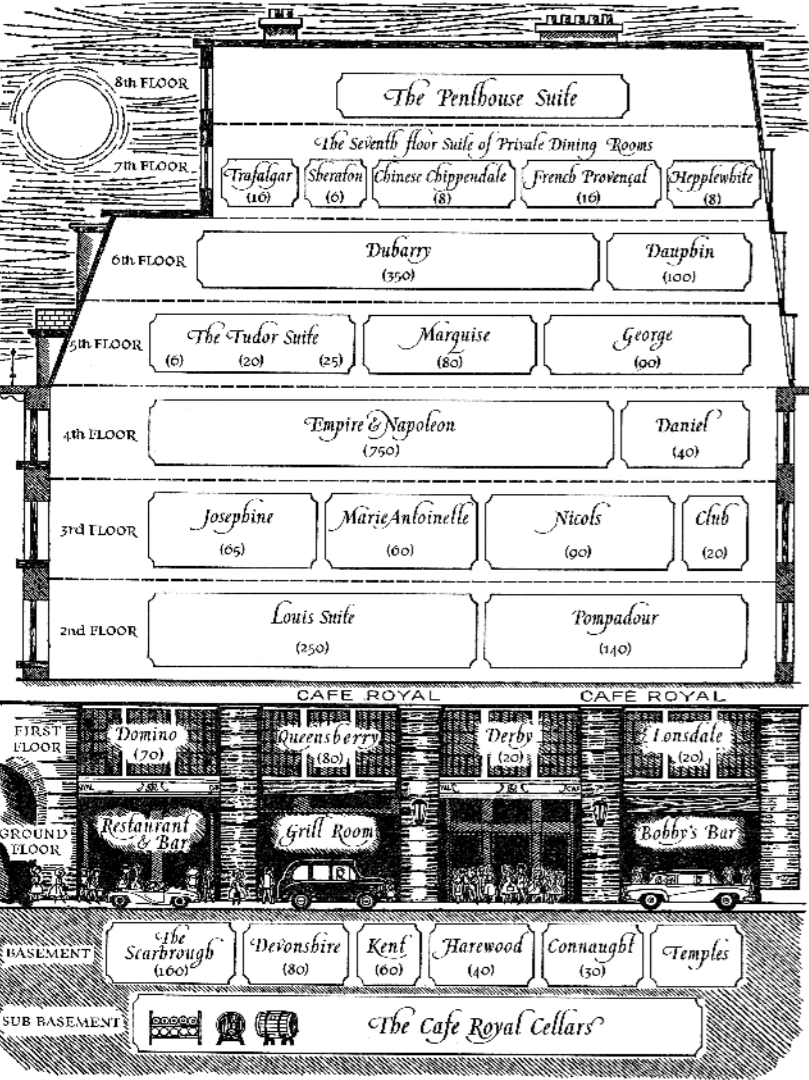 8th FLOOR
The Penthouse Suite
The Seventh floor Suite of Private Dining Rooms
7th FLOOR
Trafalgar
(16)
Sheraton
(6)
Chinese Chippendale
(8)
French Provençal
(16)
Hepplewhite
(8)
6th FLOOR
Dubarry
(350)
Dauphin
(100)
5th FLOOR
The Tudor Suite
(6) (20) (25)
Marquise
(80)
George
(90)
4th FLOOR
Empire & Napoleon
(750)
Daniel
(40)
3rd FLOOR
Josephine
(65)
Marie Antoinette
(60)
Nicols
(90)
Club
(20)
2nd FLOOR
Louis Suite
(250)
Pompadour
(140)
CAFE ROYAL CAFE ROYAL
FIRST
FLOOR
Domino
(70)
Queensberry
(80)
Derby
(20)
Lonsdale
(20)
GROUND
FLOOR
Restaurant
& Bar
Grill Room
Bobby's Bar
BASEMENT
The
Scarbrough
(160)
Devonshire
(80)
Kent
(60)
Harewood
(40)
Connaught
(30)
Temples
SUB BASEMENT
The Cafe Royal Cellars